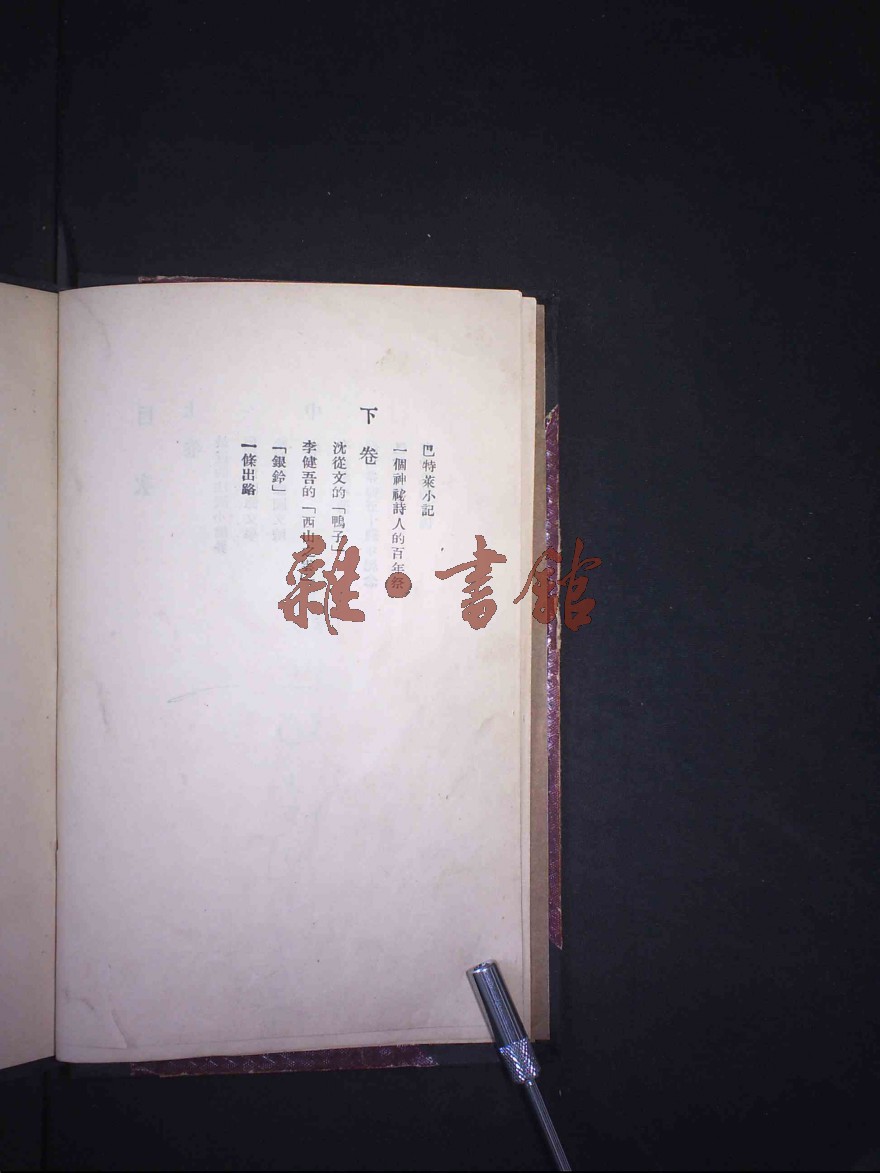 巴特萊小記
一個神祕詩人的百年祭
下卷
沈從文的「鴨子」
李健吾的「西山
「銀鈴」
一條出路
雜·書館